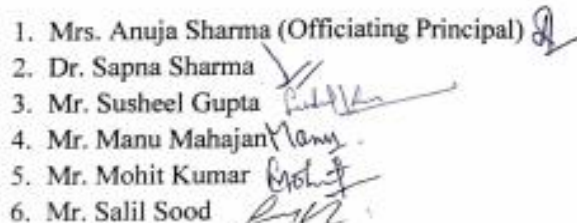 1. Mrs. Anuja Sharma (Officiating Principal)
2. Dr. Sapna Sharma
3. Mr. Susheel Gupta
4. Mr. Manu Mahajan Manu
5. Mr. Mohit Kumar Mohit
6. Mr. Salil Sood